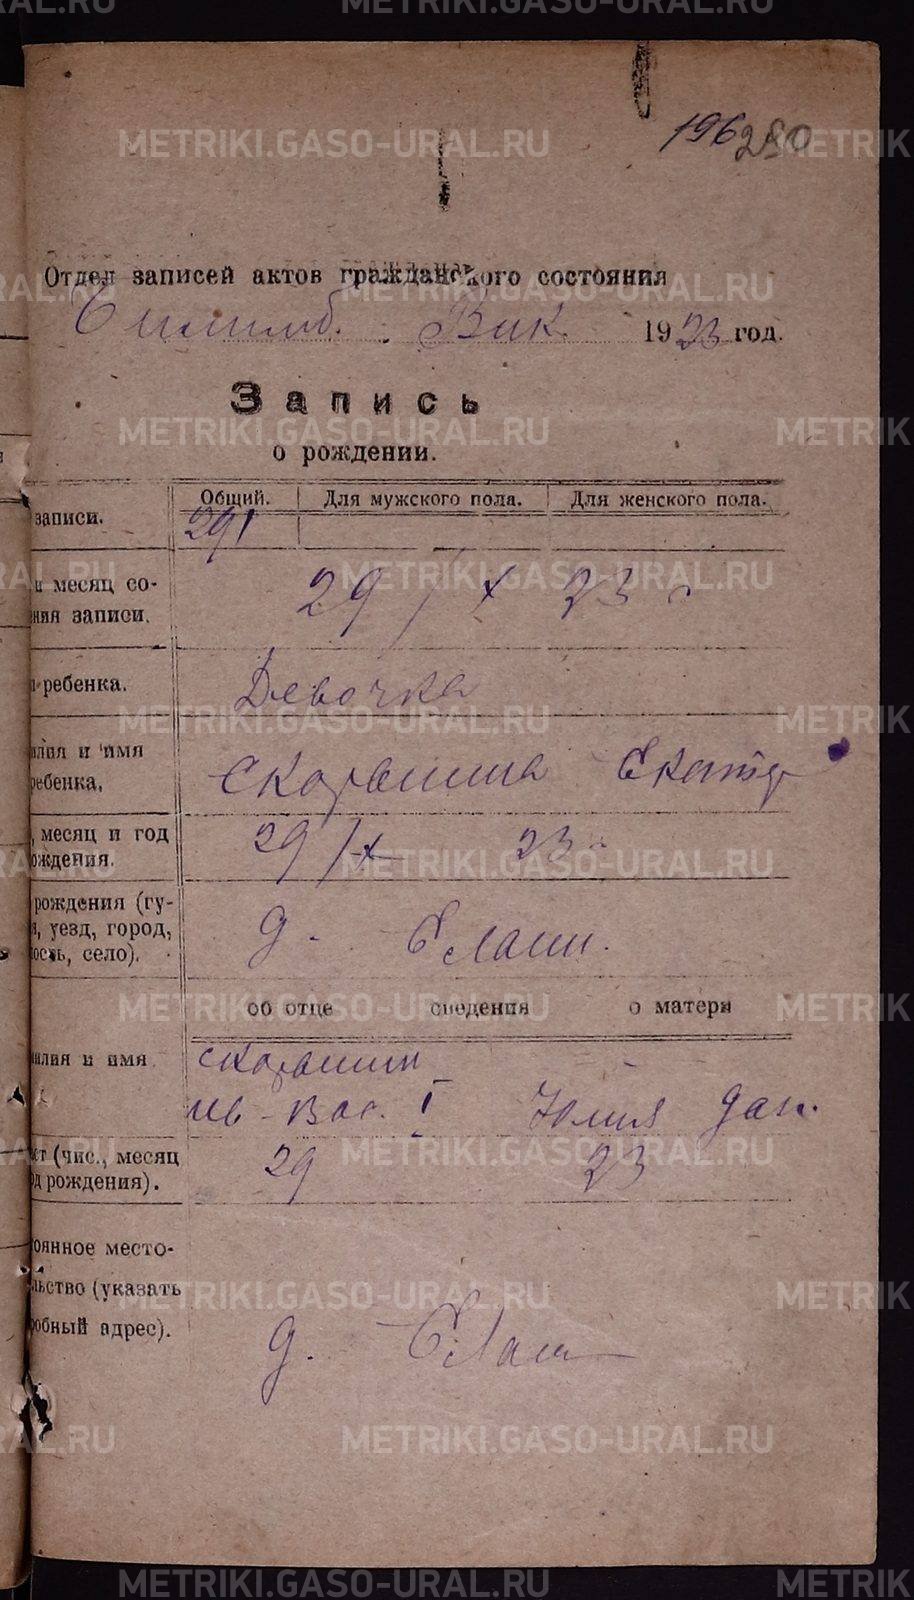 196 290
Отдел записей актов гражданского состояния
Вик. 1923 год.
Запись
о рождении.
Общий. Для мужского пола. Для женского пола.
записи. 291
и месяц со-
ния записи. 29/X 23 г
ребенка. Девочка
илия и имя
ребенка, Екатер
, месяц и год
ождения. 29/X 23 г
рождения (гу-
я, уезд, город,
ость, село). д. Елани.
об отце сведения о матери
илия и имя
Ив-Вас. I Юлия Дан.
ст (чис., месяц 29 23
д рождения).
оянное место-
льство (указать
обный адрес). д. Елан
METRIKI.GASO-URAL.RU